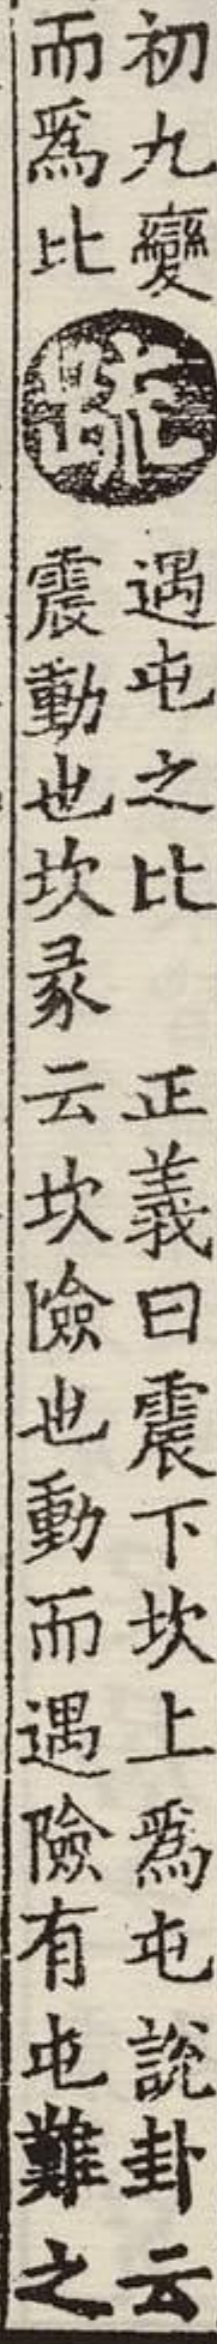 初九變
而爲比
疏
遇屯之比　正義曰震下坎上爲屯說卦云
震動也坎彖云坎險也動而遇險有屯難之